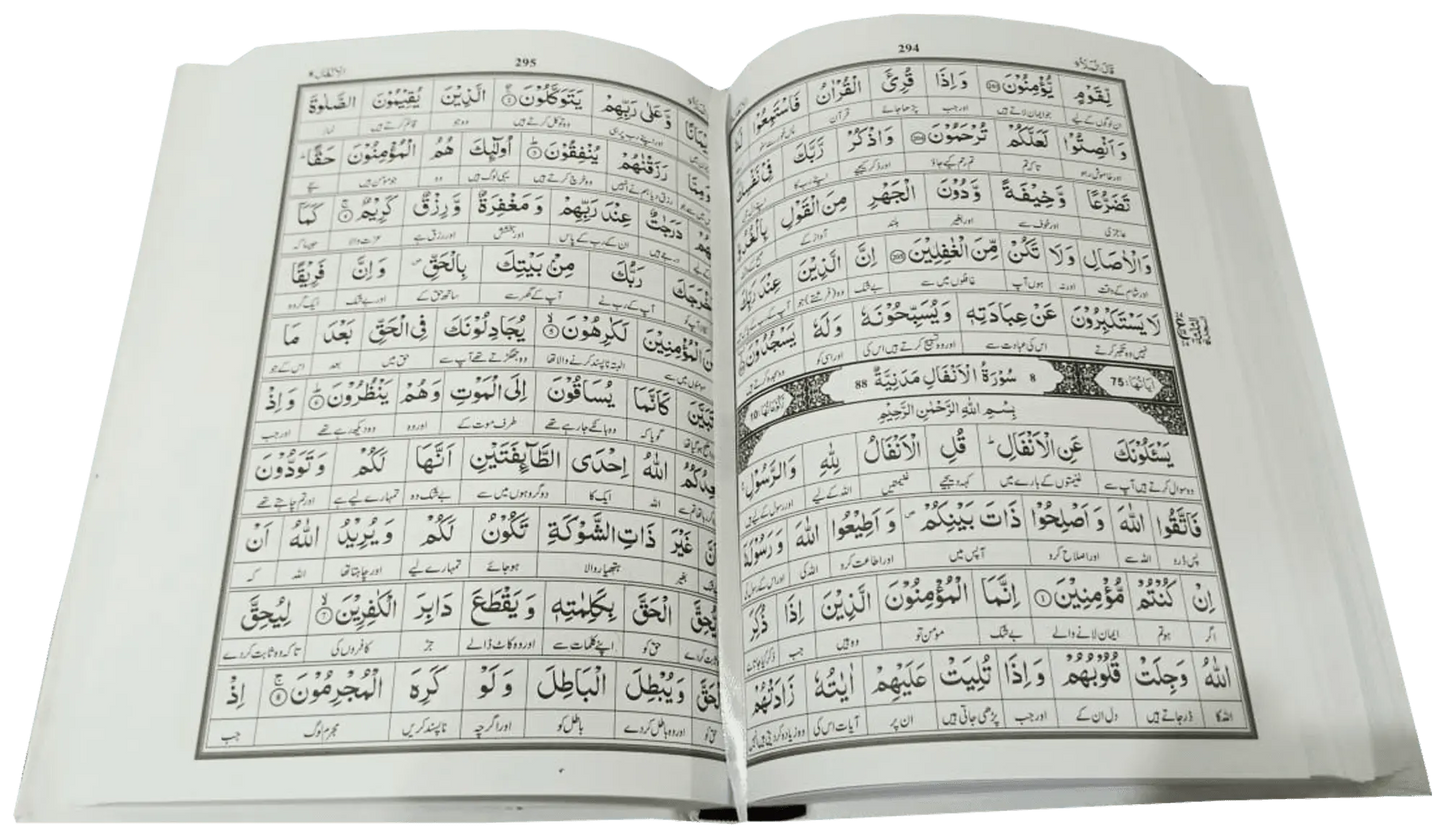 294
قَالَ الْمَلَاُ ٩
لِّقَوْمٍ يُّؤْمِنُوْنَ ﴿٢٠٣﴾ وَ اِذَا قُرِئَ الْقُرْاٰنُ فَاسْتَمِعُوْا
ان لوگوں کے لیے جو ایمان لاتے ہیں اور جب پڑھا جائے قرآن
وَ اَنْصِتُوْا لَعَلَّكُمْ تُرْحَمُوْنَ ﴿٢٠٤﴾ وَاذْكُرْ رَّبَّكَ فِیْ نَفْسِكَ
اور خاموش رہو تاکہ تم تم رحم کیے جاؤ اور ذکر کیجیے اپنے رب کا
تَضَرُّعًا وَّخِیْفَةً وَّدُوْنَ الْجَهْرِ مِنَ الْقَوْلِ بِالْغُدُوِّ
عاجزی اور خوف سے اور بغیر بلند آواز کے
وَالْاٰصَالِ وَلَا تَكُنْ مِّنَ الْغٰفِلِیْنَ ﴿٢٠٥﴾ اِنَّ الَّذِیْنَ عِنْدَ رَبِّكَ
اور شام کے وقت اور نہ ہوں آپ غافلوں میں سے بے شک وہ (فرشتے) جو
لَا یَسْتَكْبِرُوْنَ عَنْ عِبَادَتِهٖ وَیُسَبِّحُوْنَهٗ وَلَهٗ یَسْجُدُوْنَ
نہیں وہ تکبر کرتے اس کی عبادت سے اور وہ تسبیح کرتے ہیں اس کی اور اسی کو وہ سجدہ کرتے ہیں
اٰیَاتُهَا: 75 8 سُوْرَةُ الْاَنْفَالِ مَدَنِیَّةٌ 88 رُكُوْعَاتُهَا: 10
بِسْمِ اللّٰهِ الرَّحْمٰنِ الرَّحِیْمِ
یَسْئَلُوْنَكَ عَنِ الْاَنْفَالِ ؕ قُلِ الْاَنْفَالُ لِلّٰهِ وَالرَّسُوْلِ
وہ سوال کرتے ہیں آپ سے غنیمتوں کے بارے میں کہہ دیجیے غنیمتیں اللہ کے لیے اور رسول کے لیے ہیں
فَاتَّقُوا اللّٰهَ وَ اَصْلِحُوْا ذَاتَ بَیْنِكُمْ ۪ وَ اَطِیْعُوا اللّٰهَ وَ رَسُوْلَهٗۤ
پس ڈرو اللہ سے اور اصلاح کرو آپس میں اور اطاعت کرو اللہ کی اور اس کے رسول کی
اِنْ كُنْتُمْ مُّؤْمِنِیْنَ ﴿١﴾ اِنَّمَا الْمُؤْمِنُوْنَ الَّذِیْنَ اِذَا ذُكِرَ
اگر ہو تم ایمان لانے والے بے شک مومن تو وہ ہیں جب ذکر کیا جاتا ہے
اللّٰهُ وَجِلَتْ قُلُوْبُهُمْ وَ اِذَا تُلِیَتْ عَلَیْهِمْ اٰیٰتُهٗ زَادَتْهُمْ
اللہ کا ڈر جاتے ہیں دل ان کے اور جب پڑھی جاتی ہیں ان پر آیات اس کی وہ زیادہ کر دیتی ہیں
295
الْاَنْفَال ٨
اِیْمَانًا وَّعَلٰی رَبِّهِمْ یَتَوَكَّلُوْنَ ﴿٢﴾ الَّذِیْنَ یُقِیْمُوْنَ الصَّلٰوةَ
اور اپنے رب پر ہی وہ توکل کرتے ہیں وہ جو قائم کرتے ہیں نماز
وَمِمَّا رَزَقْنٰهُمْ یُنْفِقُوْنَ ﴿٣﴾ اُولٰٓئِكَ هُمُ الْمُؤْمِنُوْنَ حَقًّا ؕ
رزق دیا ہم نے انہیں وہ خرچ کرتے ہیں یہی لوگ ہیں وہ جو مومن ہیں سچے
لَهُمْ دَرَجٰتٌ عِنْدَ رَبِّهِمْ وَ مَغْفِرَةٌ وَّ رِزْقٌ كَرِیْمٌ ﴿٤﴾ كَمَاۤ
درجے ہیں ان کے رب کے پاس اور بخشش اور رزق ہے عزت والا جیسا کہ
اَخْرَجَكَ رَبُّكَ مِنْۢ بَیْتِكَ بِالْحَقِّ ۪ وَ اِنَّ فَرِیْقًا
آپ کے رب نے آپ کے گھر سے ساتھ حق کے اور بے شک ایک گروہ
مِّنَ الْمُؤْمِنِیْنَ لَكٰرِهُوْنَ ﴿٥﴾ یُجَادِلُوْنَكَ فِی الْحَقِّ بَعْدَ مَا
مومنوں میں سے البتہ ناپسند کرنے والا تھا وہ جھگڑتے تھے آپ سے حق میں بعد اس کے جو
تَبَیَّنَ كَاَنَّمَا یُسَاقُوْنَ اِلَی الْمَوْتِ وَهُمْ یَنْظُرُوْنَ ﴿٦﴾ وَ اِذْ
گویا کہ وہ ہانکے جا رہے تھے طرف موت کے اور وہ وہ دیکھ رہے تھے اور جب
یَعِدُكُمُ اللّٰهُ اِحْدَی الطَّآئِفَتَیْنِ اَنَّهَا لَكُمْ وَ تَوَدُّوْنَ
اللہ ایک کا دو گروہوں میں سے بے شک وہ تمہارے لیے ہے اور تم چاہتے تھے
اَنَّ غَیْرَ ذَاتِ الشَّوْكَةِ تَكُوْنُ لَكُمْ وَ یُرِیْدُ اللّٰهُ اَنْ
بغیر ہتھیار والا ہو جائے تمہارے لیے اور چاہتا تھا اللہ کہ
یُّحِقَّ الْحَقَّ بِكَلِمٰتِهٖ وَ یَقْطَعَ دَابِرَ الْكٰفِرِیْنَ ﴿٧﴾ لِیُحِقَّ
حق کو اپنے کلمات سے اور وہ کاٹ ڈالے جڑ کافروں کی تاکہ وہ ثابت کر دے
الْحَقَّ وَ یُبْطِلَ الْبَاطِلَ وَ لَوْ كَرِهَ الْمُجْرِمُوْنَ ﴿٨﴾ اِذْ
حق کو اور وہ باطل کر دے باطل کو اور اگرچہ ناپسند کریں مجرم لوگ جب